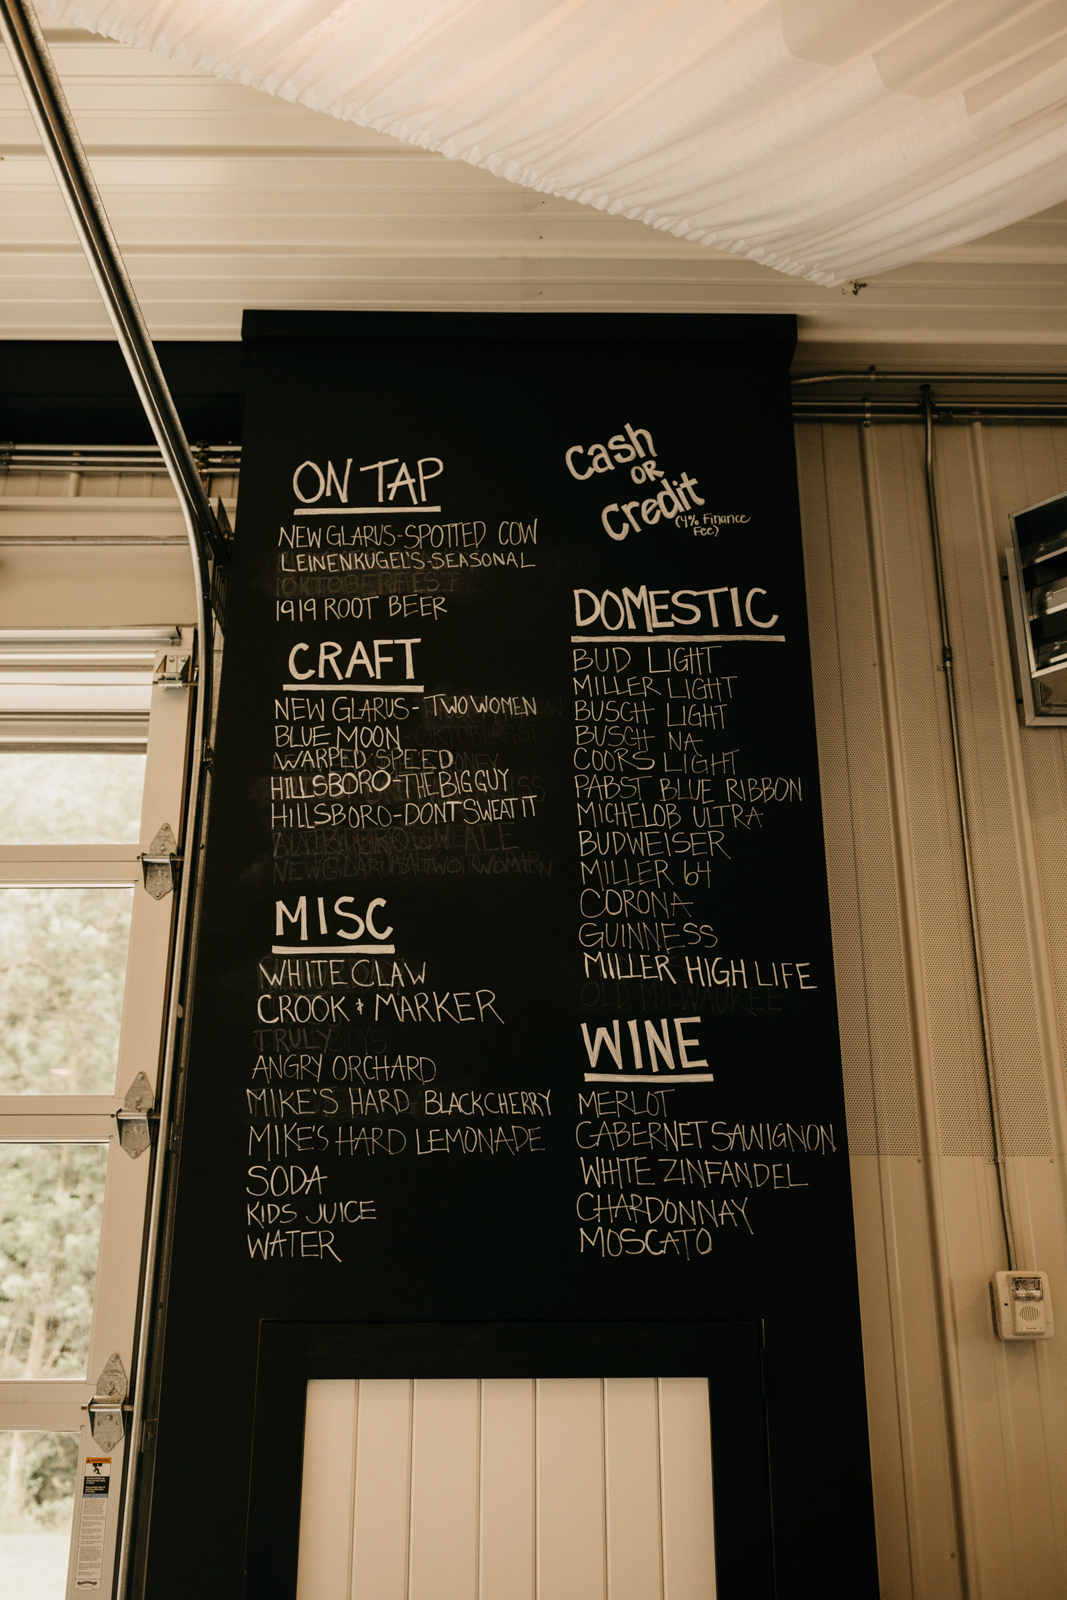 ON TAP
NEW GLARUS-SPOTTED COW
LEINENKUGEL'S-SEASONAL
OKTOBERFEST
1919 ROOT BEER
CRAFT
NEW GLARUS- TWO WOMEN
BLUE MOON
WARPED SPEED
HILLSBORO-THE BIG GUY
HILLSBORO-DONT SWEAT IT
MISC
WHITE CLAW
CROOK & MARKER
TRULY
ANGRY ORCHARD
MIKE'S HARD BLACK CHERRY
MIKE'S HARD LEMONADE
SODA
KIDS JUICE
WATER
Cash
OR
Credit
(4% Finance
Fee)
DOMESTIC
BUD LIGHT
MILLER LIGHT
BUSCH LIGHT
BUSCH NA
COORS LIGHT
PABST BLUE RIBBON
MICHELOB ULTRA
BUDWEISER
MILLER 64
CORONA
GUINNESS
MILLER HIGH LIFE
OLD MILWAUKEE
WINE
MERLOT
CABERNET SAUVIGNON
WHITE ZINFANDEL
CHARDONNAY
MOSCATO